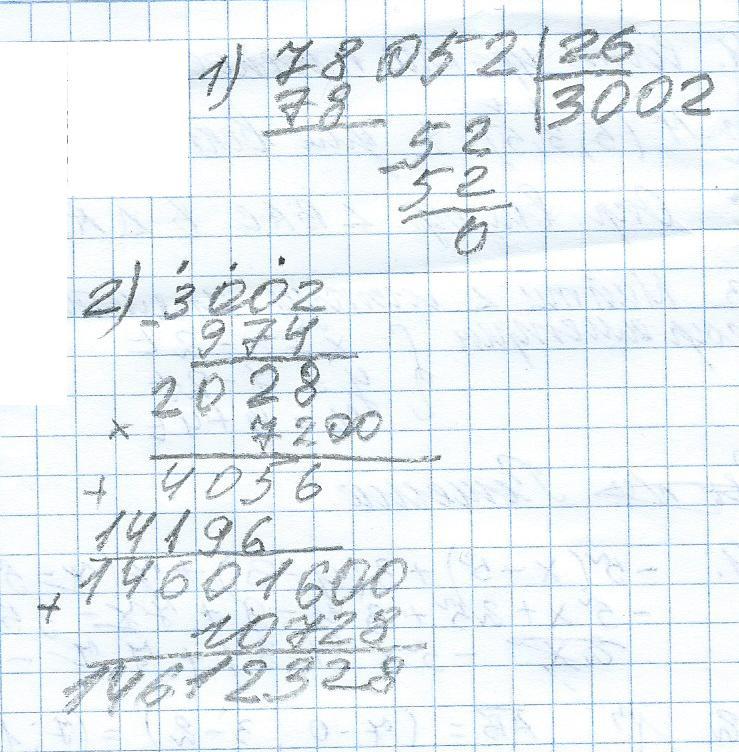 1) 78052 | 26
78 | 3002
- 52
52
0
2) - 3002
974
2028
× 7200
+ 4056
14196
14601600
+ 10728
14612328